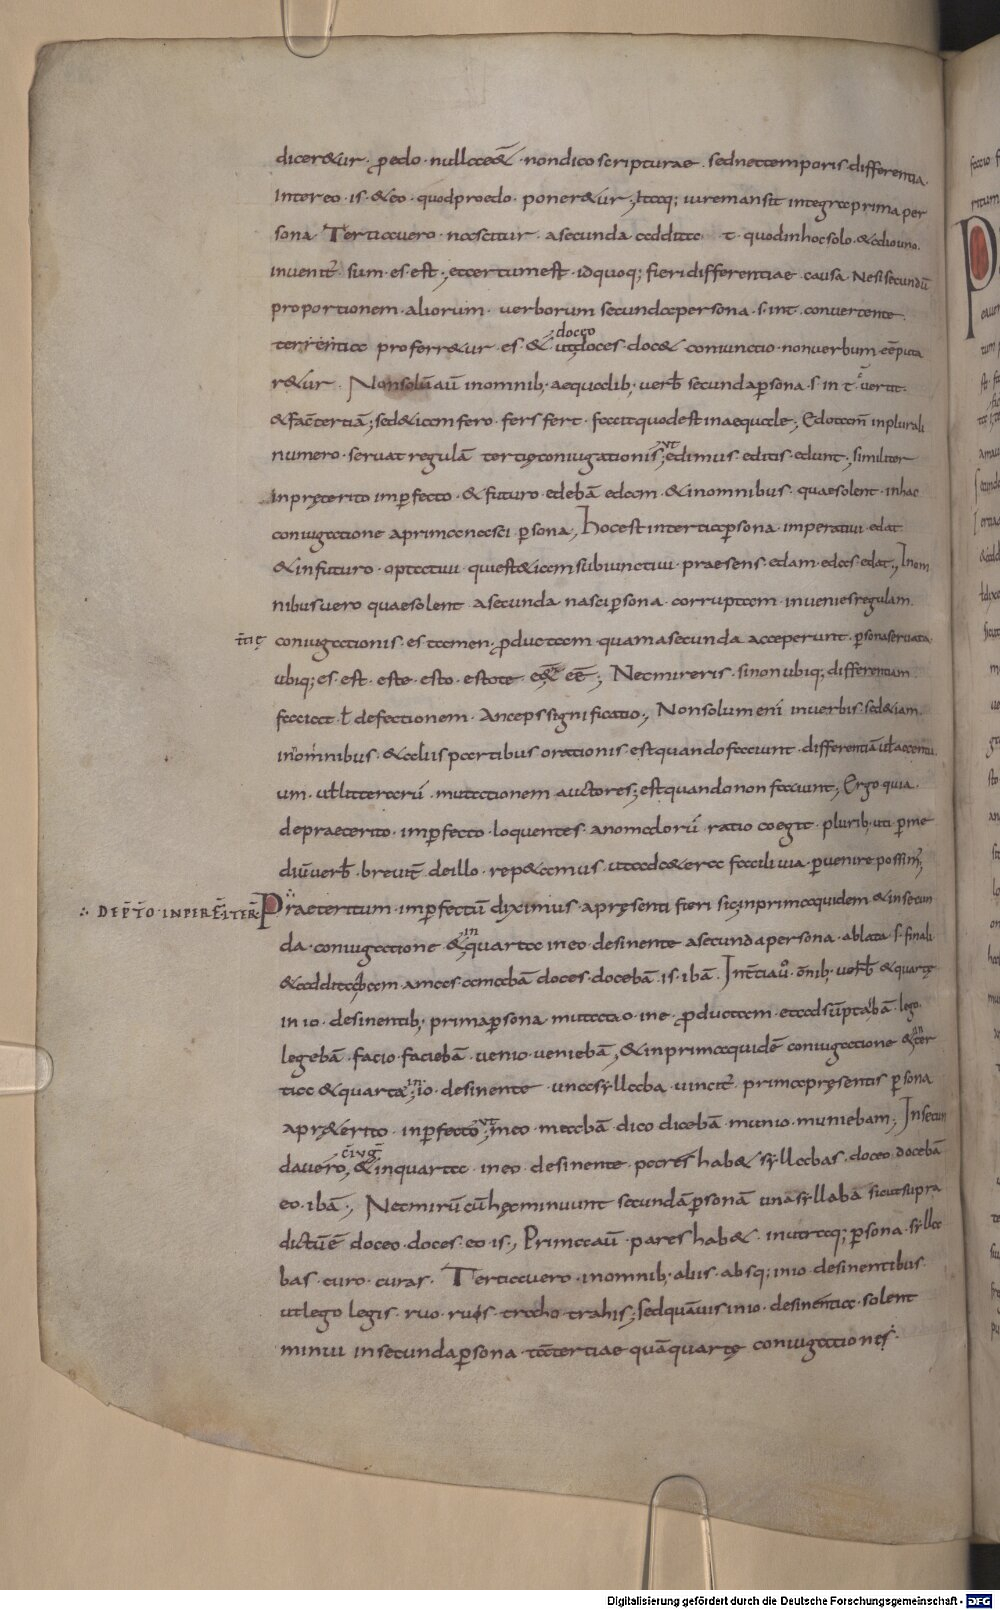 diceretur · p edo · nulla e&̄ · non dico scripturae · sed nec temporis differentia ·
Inter eo · is · & eo · quod pro edo · poner&ur ; Itaq; iure mansit integra prima per
sona · Tertia uero nascitur a secunda addita t · quod in hoc solo · & alio uno ·
inuenit̄ sum · es · est · et certum est · id quoq; fieri differentiae causa · Ne si secundū
proportionem · aliorum · uerborum secundae persona · s · in t · conuertente
terrentia proferr&ur es · & ut doceo doces · doc& coniunctio · non uerbum eē puta
r&ur · Non solū aū in omnib; aequalib; uerb̄ secunda psona · s · in t · uertit ·
& fac̄ tertiā ; sed & iam fero · fers fert · facit quod est inaequale ; Edo tam̄ in plurali
numero · seruat regulā tertię coniugationis ; ut edimus editis · edunt ; similiter
in pręterito imperfecto · & futuro · edebā edam · & in omnibus · quae solent · in hac
coniugatione a prima nasci · psona , Hoc est in tertia psona · imperatiui · edat
& in futuro · optatiui · qui est & iam subiunctiui · praesens · edam · edas · edat ; In om
nibus uero quae solent a secunda nasci psona · corruptam · inuenies regulam ·
t̄tię coniugationis · es tamen · productam · quam a secunda acceperunt · psona seruata
ubiq; es · est · este · esto · estote · eē ; Nec mireris · si non ubiq; differentiam
faciat t̄ defectionem · Anceps significatio ; Non solum eni in uerbis · sed & iam
in nominibus & aliis partibus orationis est quando faciunt · differentiā ut̄ accentu
um · ut̄ litterarū · mutationem auctores ; est quando non faciunt ; Ergo quia ·
de praeterito · imperfecto · loquentes · anomalorū ratio coegit · plurib; uti p me
diū uerb̄ · breuit̄ de illo · rep&amus ut ad c&era facili uia · peruenire possim̄ ;
∴ DE PT̄TO · INPERF̄ ITER
Praeteritum · imperfectū diximus · a pręsenti fieri sic ; in prima quidem & in secun
da · coniugatione & in quarta in eo · desinente a secunda persona · ablata · s · finali
& addita bam amas · amabā doces · docebā is · ibā . In t̄tia uº · ōnib; uerb̄ & quartę
in io · desinentib; prima psona mutata o · in e productam et adsūpta bā · lego ·
legebā · facio faciebā uenio ueniebā , & in prima quidē coniugatione & in ter
tia & quarta in io · desinente una syllaba uincit̄ prima pręsentis psona
a pręterito inperfecto ; ut meo meabā dico dicebā munio · muniebam ; In secun
da uero c̄iuḡ , & in quarta in eo desinente pares hab& syllabas · doceo docebā
eo · ibā ; Nec mirū cū hęc minuunt secundā psonā una syllaba sicut supra
dictū ē doceo · doces · eo is ; Prima aū pares hab& · in utraq; psona · sylla
bas · curo · curas · Tertia uero · in omnib; aliis · absq; in io · desinentibus
ut lego legis · ruo · ruis · traho trahis ; sed quāuis in io · desinentia · solent
minui in secunda psona tā tertiae quā quartę coniugationes ·